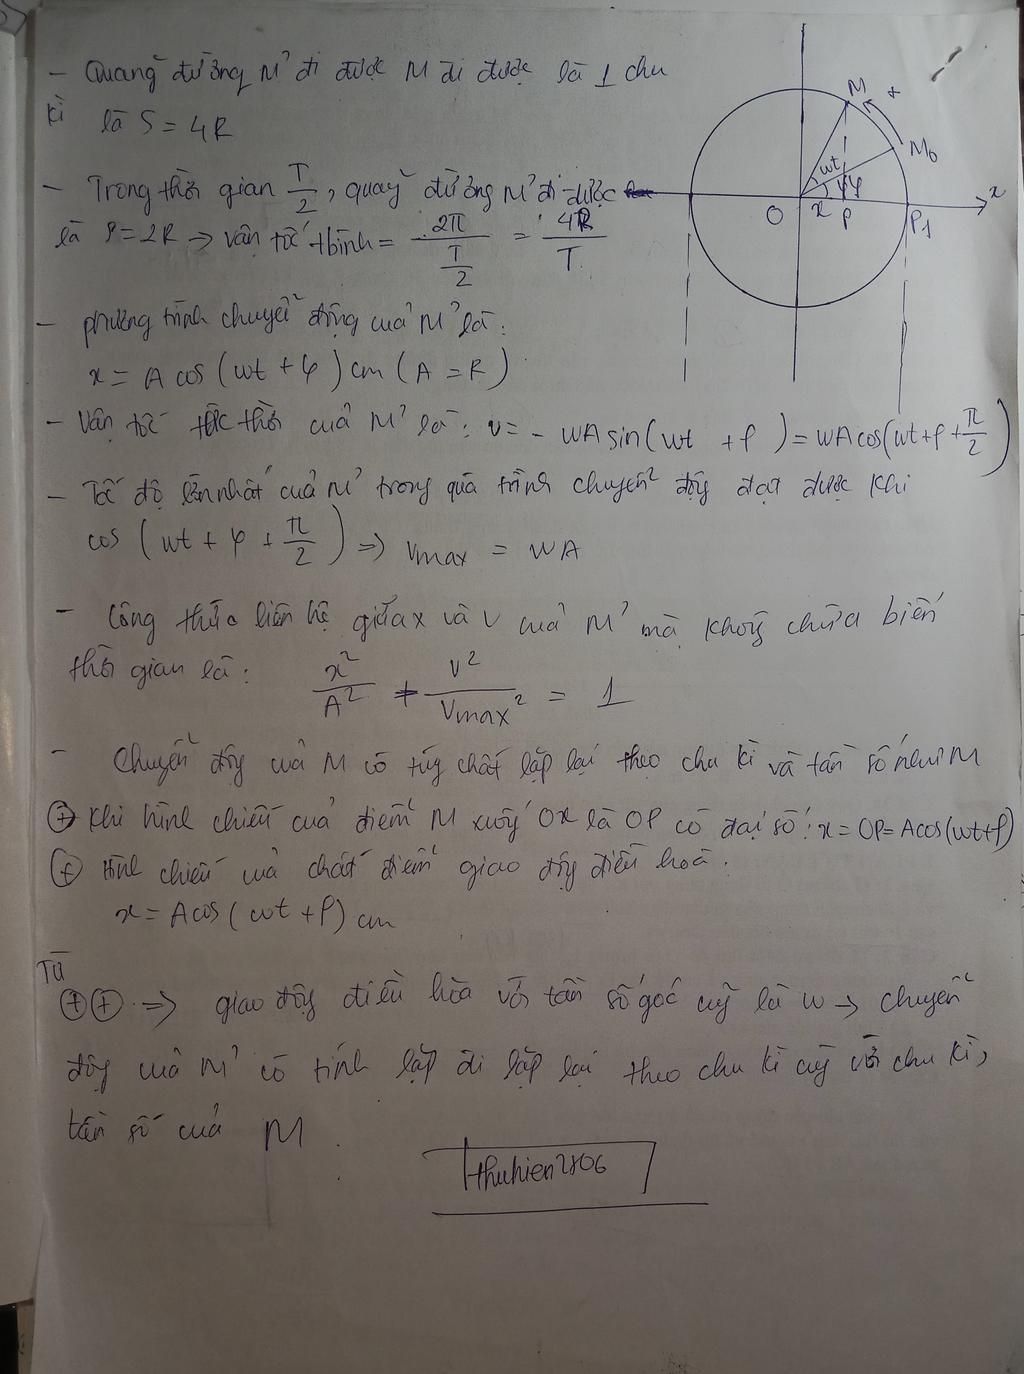 - Quãng đường M' đi được M đi được là 1 chu
kì là S = 4R
- Trong thời gian T/2, quãng đường M' đi được
là S = 2R => vận tốc tbình = 2π/(T/2) = 4R/T
- phương trình chuyển động của M' là:
x = A cos(ωt + φ) cm (A = R)
- Vận tốc tức thời của M' là: v = - ωA sin(ωt + φ) = ωA cos(ωt + φ + π/2)
- Tốc độ lớn nhất của M' trong quá trình chuyển động đạt được khi
cos(ωt + φ + π/2) => Vmax = ωA
- Công thức liên hệ giữa x và v của M' mà không chứa biến
thời gian là: x²/A² + v²/Vmax² = 1
- Chuyển động của M có tính chất lặp lại theo chu kì và tần số như M
⊕ Khi hình chiếu của điểm M xuống Ox là OP có đại số: x = OP = A cos(ωt + φ)
⊕ Hình chiếu của chất điểm giao động điều hoà.
x = A cos(ωt + φ) cm
Từ
⊕⊕ => giao động điều hòa với tần số góc cũng là ω → chuyển
động của M' có tính lặp đi lặp lại theo chu kì cùng với chu kì,
tần số của M.
thuhien2806
M
+
M₀
ωt
φ
x
O
x
P
P₁